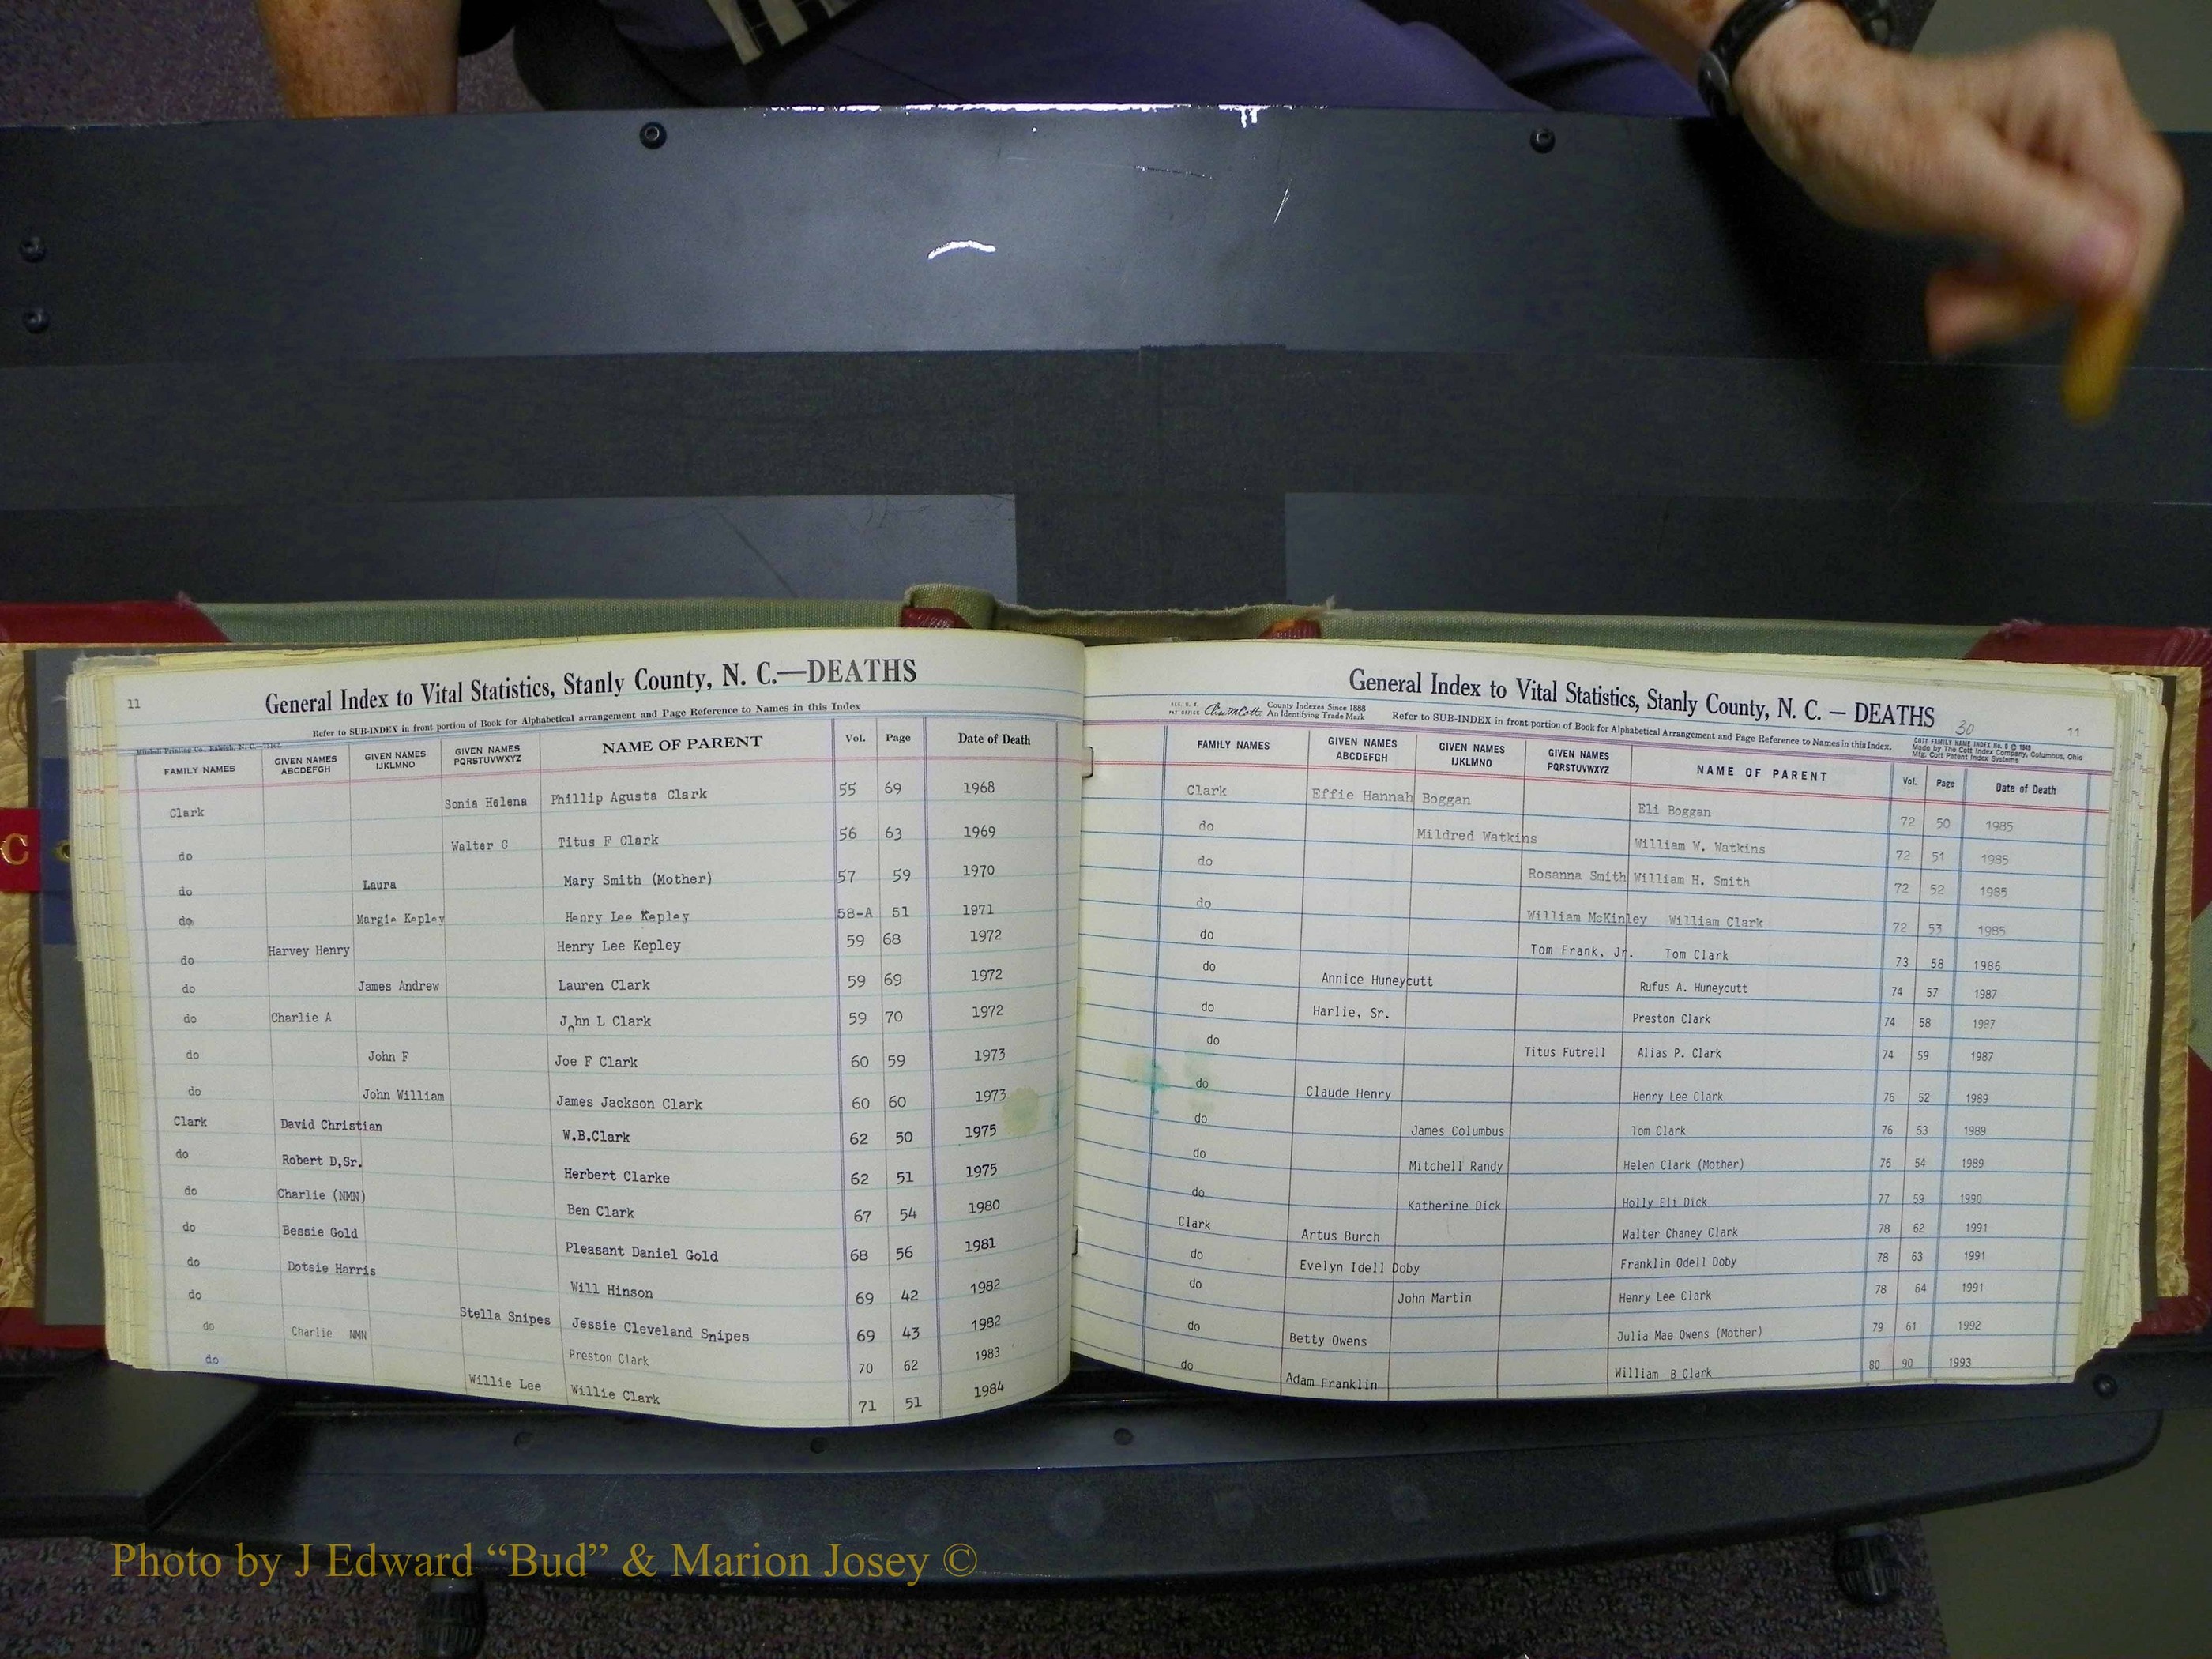 11
General Index to Vital Statistics, Stanly County, N. C.—DEATHS
Refer to SUB-INDEX in front portion of Book for Alphabetical arrangement and Page Reference to Names in this Index
Mitchell Printing Co., Raleigh, N. C.
FAMILY NAMES GIVEN NAMES ABCDEFGH GIVEN NAMES IJKLMNO GIVEN NAMES PQRSTUVWXYZ NAME OF PARENT Vol. Page Date of Death
Clark Sonia Helena Phillip Agusta Clark 55 69 1968
do Walter C Titus F Clark 56 63 1969
do Laura Mary Smith (Mother) 57 59 1970
do Margie Kepley Henry Lee Kepley 58-A 51 1971
do Harvey Henry Henry Lee Kepley 59 68 1972
do James Andrew Lauren Clark 59 69 1972
do Charlie A John L Clark 59 70 1972
do John F Joe F Clark 60 59 1973
do John William James Jackson Clark 60 60 1973
Clark David Christian W.B.Clark 62 50 1975
do Robert D,Sr. Herbert Clarke 62 51 1975
do Charlie (NMN) Ben Clark 67 54 1980
do Bessie Gold Pleasant Daniel Gold 68 56 1981
do Dotsie Harris Will Hinson 69 42 1982
do Stella Snipes Jessie Cleveland Snipes 69 43 1982
do Charlie NMN Preston Clark 70 62 1983
do Willie Lee Willie Clark 71 51 1984
General Index to Vital Statistics, Stanly County, N. C. — DEATHS
30
11
County Indexes Since 1888
An Identifying Trade Mark
Refer to SUB-INDEX in front portion of Book for Alphabetical Arrangement and Page Reference to Names in this Index.
Made by The Cott Index Company, Columbus, Ohio
Mfg. Cott Patent Index Systems
FAMILY NAMES GIVEN NAMES ABCDEFGH GIVEN NAMES IJKLMNO GIVEN NAMES PQRSTUVWXYZ NAME OF PARENT Vol. Page Date of Death
Clark Effie Hannah Boggan Eli Boggan 72 50 1985
do Mildred Watkins William W. Watkins 72 51 1985
do Rosanna Smith William H. Smith 72 52 1985
do William McKinley William Clark 72 53 1985
do Tom Frank, Jr. Tom Clark 73 58 1986
do Annice Huneycutt Rufus A. Huneycutt 74 57 1987
do Harlie, Sr. Preston Clark 74 58 1987
do Titus Futrell Alias P. Clark 74 59 1987
do Claude Henry Henry Lee Clark 76 52 1989
do James Columbus Tom Clark 76 53 1989
do Mitchell Randy Helen Clark (Mother) 76 54 1989
do Katherine Dick Holly Eli Dick 77 59 1990
Clark Artus Burch Walter Chaney Clark 78 62 1991
do Evelyn Idell Doby Franklin Odell Doby 78 63 1991
do John Martin Henry Lee Clark 78 64 1991
do Betty Owens Julia Mae Owens (Mother) 79 61 1992
do Adam Franklin William B Clark 80 90 1993
C
Photo by J Edward “Bud” & Marion Josey ©